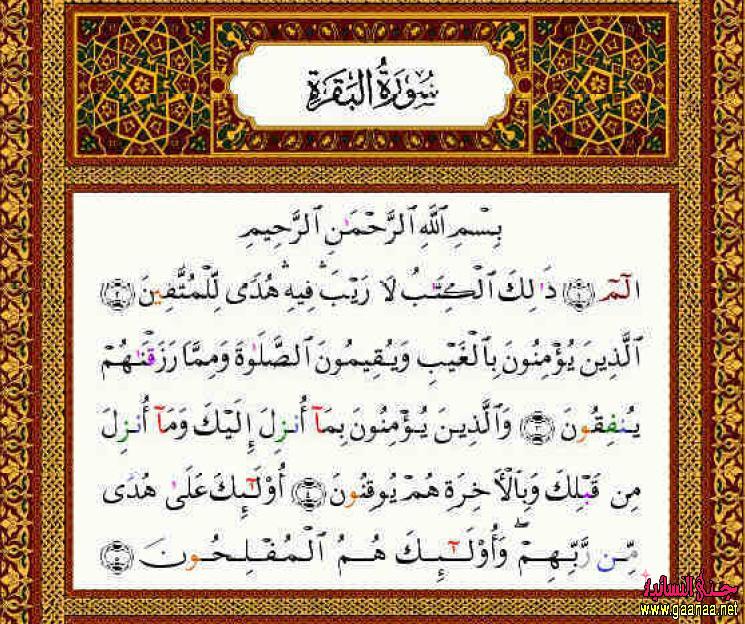 سُورَةُ البَقَرَةِ
بِسْمِ ٱللَّهِ ٱلرَّحْمَـٰنِ ٱلرَّحِيمِ
الٓمٓ ﴿١﴾ ذَٰلِكَ ٱلْكِتَـٰبُ لَا رَيْبَ ۛ فِيهِ ۛ هُدًى لِّلْمُتَّقِينَ ﴿٢﴾
ٱلَّذِينَ يُؤْمِنُونَ بِٱلْغَيْبِ وَيُقِيمُونَ ٱلصَّلَوٰةَ وَمِمَّا رَزَقْنَـٰهُمْ
يُنفِقُونَ ﴿٣﴾ وَٱلَّذِينَ يُؤْمِنُونَ بِمَآ أُنزِلَ إِلَيْكَ وَمَآ أُنزِلَ
مِن قَبْلِكَ وَبِٱلْأَخِرَةِ هُمْ يُوقِنُونَ ﴿٤﴾ أُوْلَـٰٓئِكَ عَلَىٰ هُدًى
مِّن رَّبِّهِمْ ۖ وَأُوْلَـٰٓئِكَ هُمُ ٱلْمُفْلِحُونَ ﴿٥﴾
www.gaanaa.net